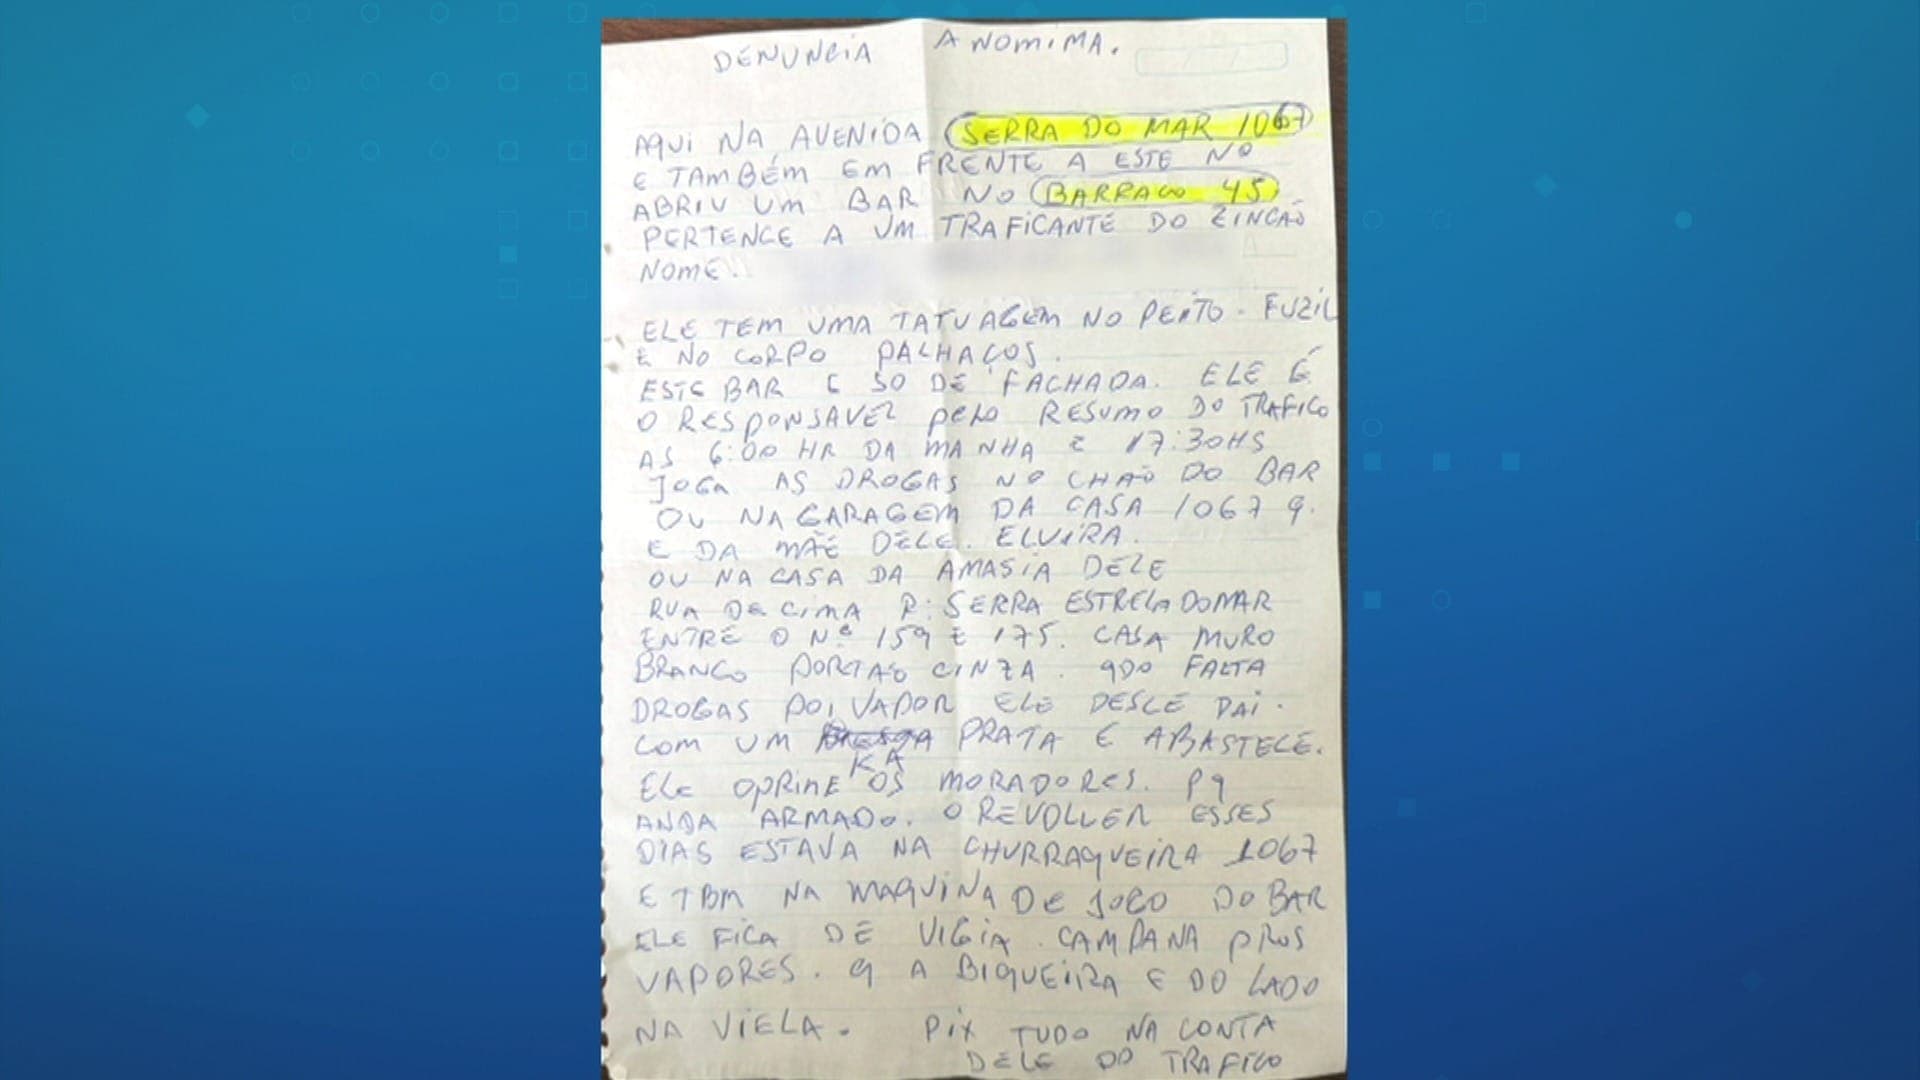 DENUNCIA ANOMIMA.
AQUI NA AVENIDA SERRA DO MAR 1067
E TAMBÉM EM FRENTE A ESTE Nº
ABRIU UM BAR NO BARRACO 45
PERTENCE A UM TRAFICANTE DO ZINCÃO
NOME:
ELE TEM UMA TATUAGEM NO PEITO - FUZIL
E NO CORPO PALHAÇOS.
ESTE BAR E SO DE FACHADA. ELE É
O RESPONSAVEL PELO RESUMO DO TRAFICO
AS 6:00 HR DA MANHA E 17:30HS
JOGA AS DROGAS NO CHÃO DO BAR
OU NA GARAGEM DA CASA 1067 Q.
E DA MÃE DELE. ELVIRA.
OU NA CASA DA AMASIA DELE
RUA DE CIMA R: SERRA ESTRELA DO MAR
ENTRE O Nº 159 E 175. CASA MURO
BRANCO PORTAO CINZA. QDO FALTA
DROGAS VAPOR ELE DESCE DAI.
COM UM KA PRATA E ABASTECE.
ELE OPRIME OS MORADORES. PQ
ANDA ARMADO. O REVOLVER ESSES
DIAS ESTAVA NA CHURRAQUEIRA 1067
E TBM NA MAQUINA DE JOGO DO BAR
ELE FICA DE VIGIA. CAMPANA PROS
VAPORES. Q A BIQUEIRA E DO LADO
NA VIELA. PIX TUDO NA CONTA
DELE DO TRAFICO